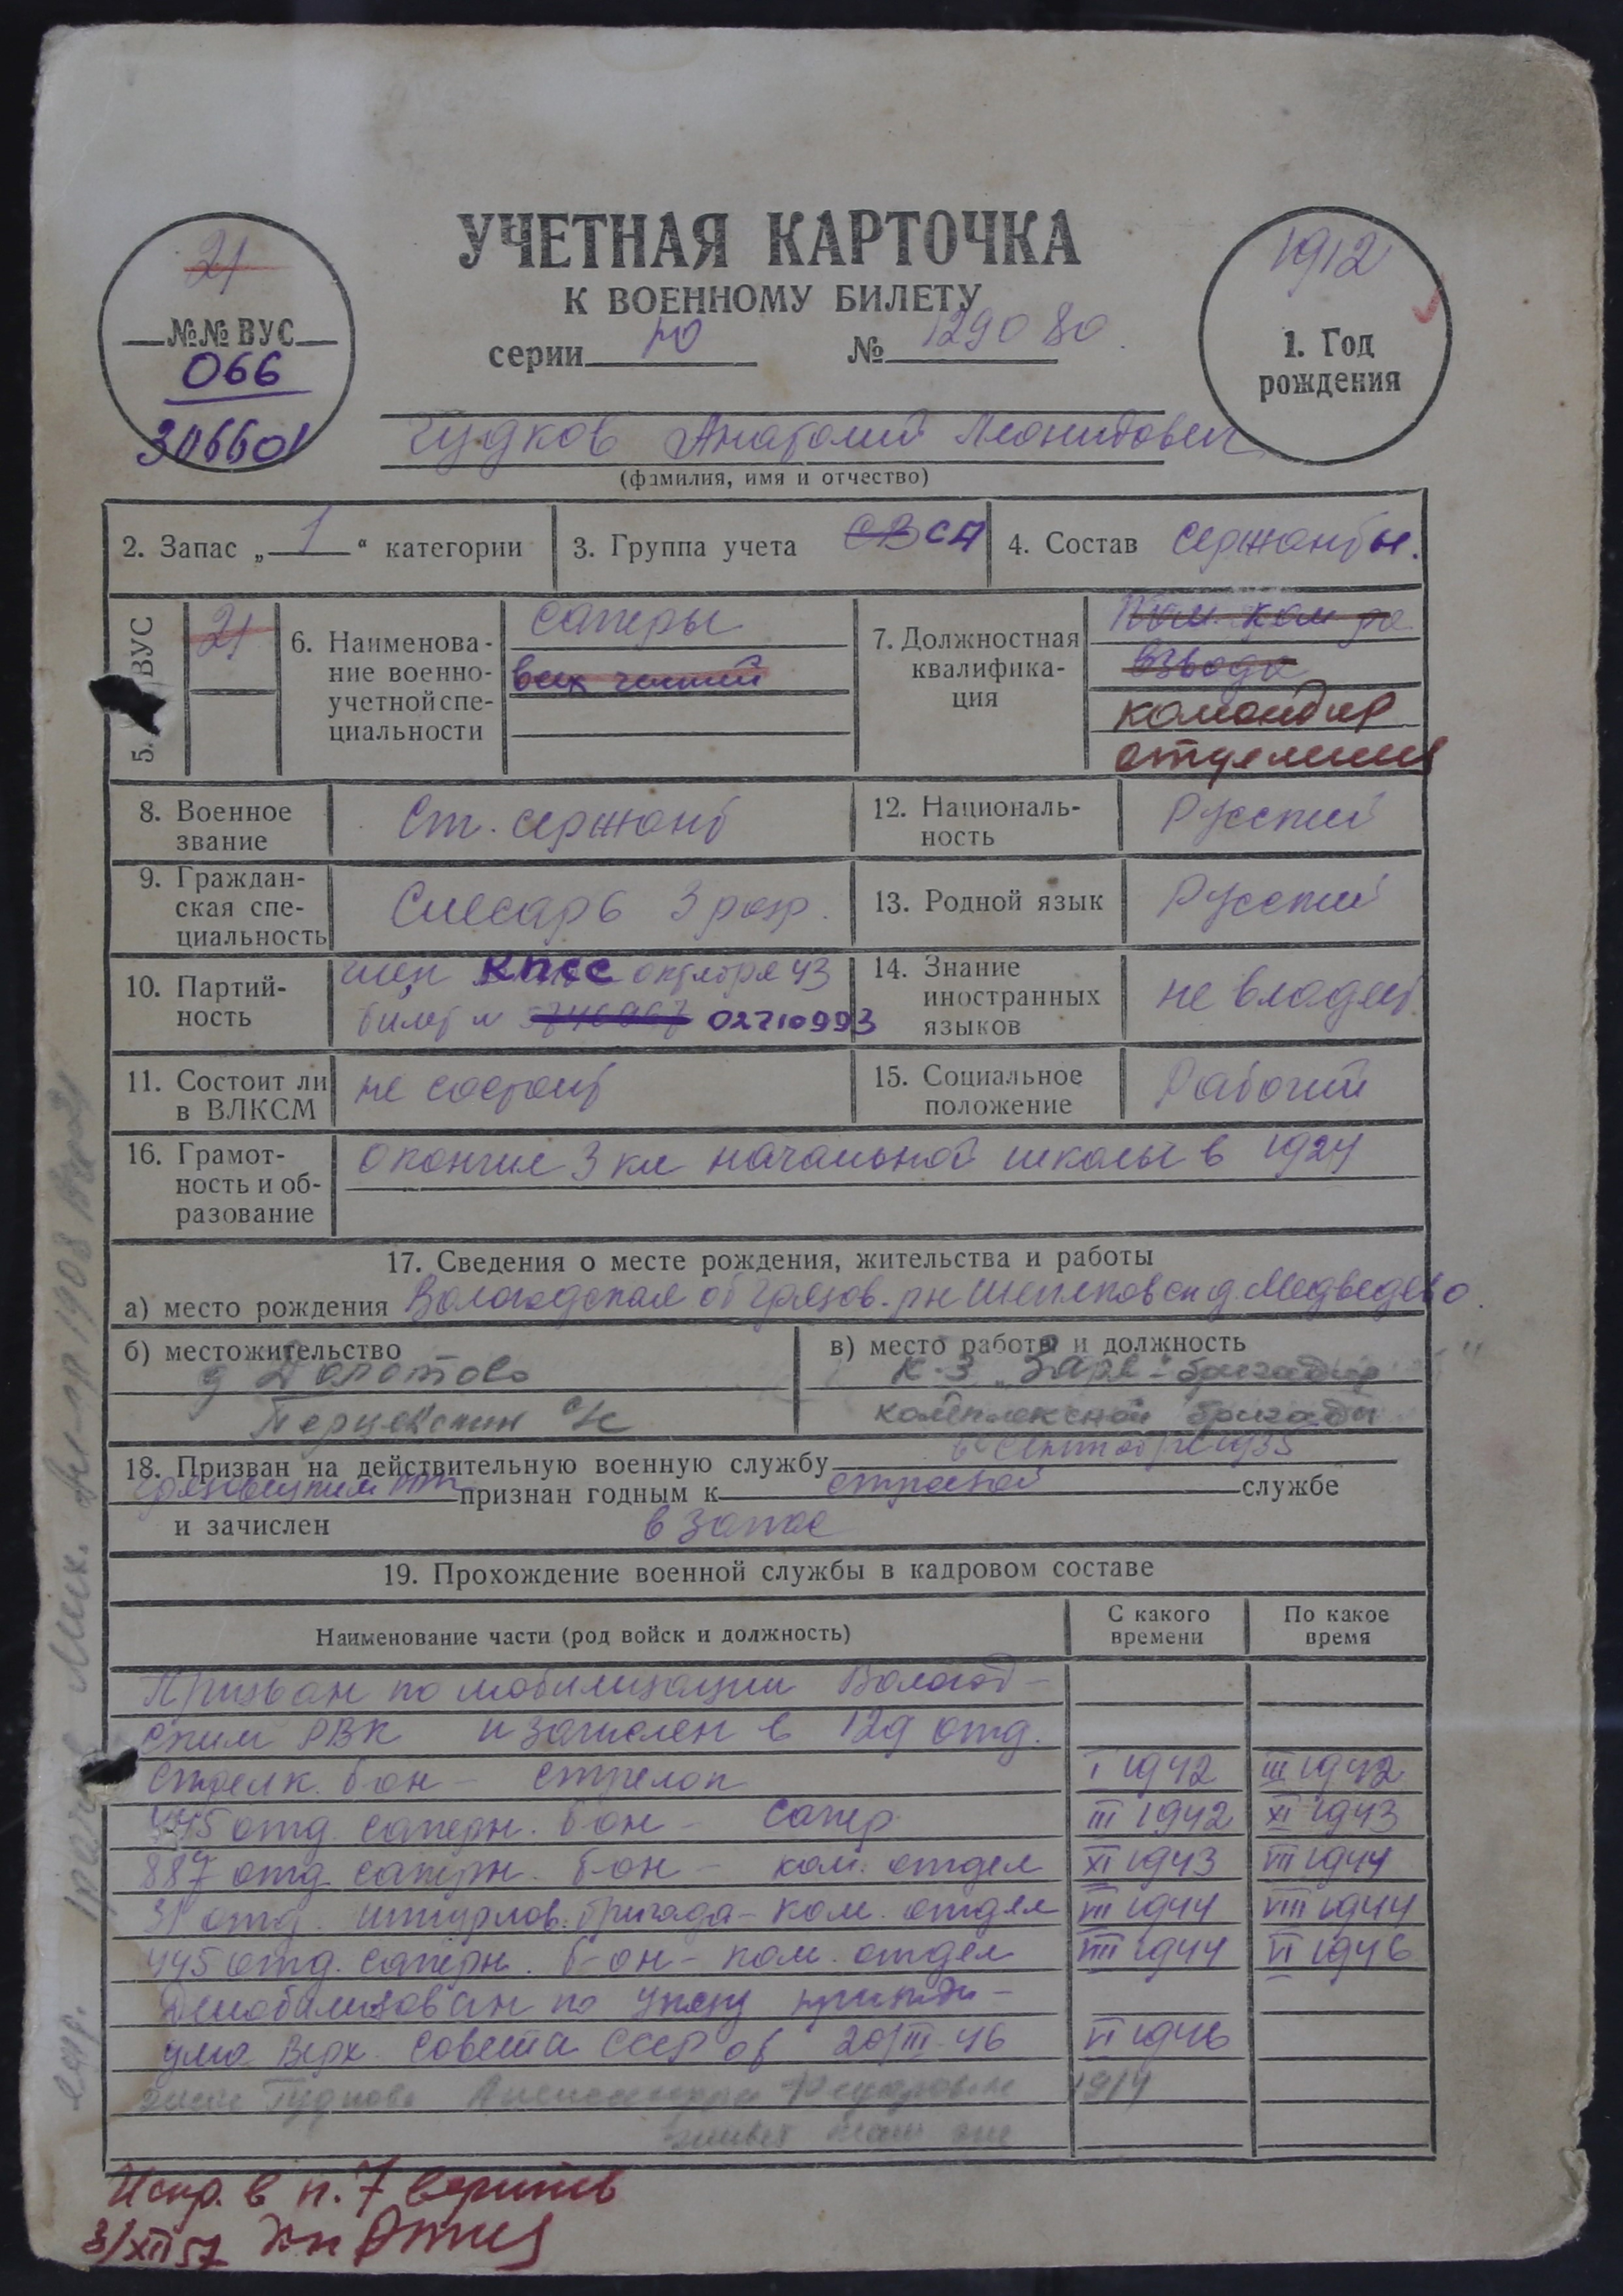 УЧЕТНАЯ КАРТОЧКА
К ВОЕННОМУ БИЛЕТУ
серии НО № 129080.
21
№№ ВУС
066
306601
1912
1. Год
рождения
Гудков Анатолий Леонидович
(фамилия, имя и отчество)
2. Запас „1“ категории
3. Группа учета СВ СА
4. Состав сержанты.
5. ВУС
21
6. Наименова-
ние военно-
учетной спе-
циальности
саперы
всех частей
7. Должностная
квалифика-
ция
Пом. ком-ра
взвода
командир
отделения
8. Военное
звание
Ст. сержант
12. Националь-
ность
Русский
9. Граждан-
ская спе-
циальность
Слесарь 3 разр.
13. Родной язык
Русский
10. Партий-
ность
член КПСС октября 43
билет № 02710993
14. Знание
иностранных
языков
не владеет
11. Состоит ли
в ВЛКСМ
не состоит
15. Социальное
положение
Рабочий
16. Грамот-
ность и об-
разование
окончил 3 кл начальной школы в 1924
17. Сведения о месте рождения, жительства и работы
а) место рождения Вологодская об Грязов. рн д. Медведево
б) местожительство
д Долотово
Перцевский с/с
в) место работы и должность
к-з "Заря" - бригадир
комплексной бригады
18. Призван на действительную военную службу в сентябре 1935
Грязовецким признан годным к строевой службе
и зачислен в запас
19. Прохождение военной службы в кадровом составе
Наименование части (род войск и должность)
С какого
времени
По какое
время
Призван по мобилизации Вологод-
ским РВК и зачислен в 129 отд.
стрелк. б-он - стрелок I 1942 III 1942
445 отд. саперн. б-он - сапер III 1942 XI 1943
887 отд. саперн. б-он - ком. отдел XI 1943 VII 1944
31 отд. штурмов. бригада - ком. отдел VII 1944 VIII 1944
445 отд. саперн. б-он - ком. отдел VIII 1944 VI 1946
Демобилизован по указу президи-
ума Верх. Совета СССР от 20/III-46 VI 1946
жена Гудкова Александра Федоровна 1914
живет там же
Испр. в п. 7 верить
3/XII 57